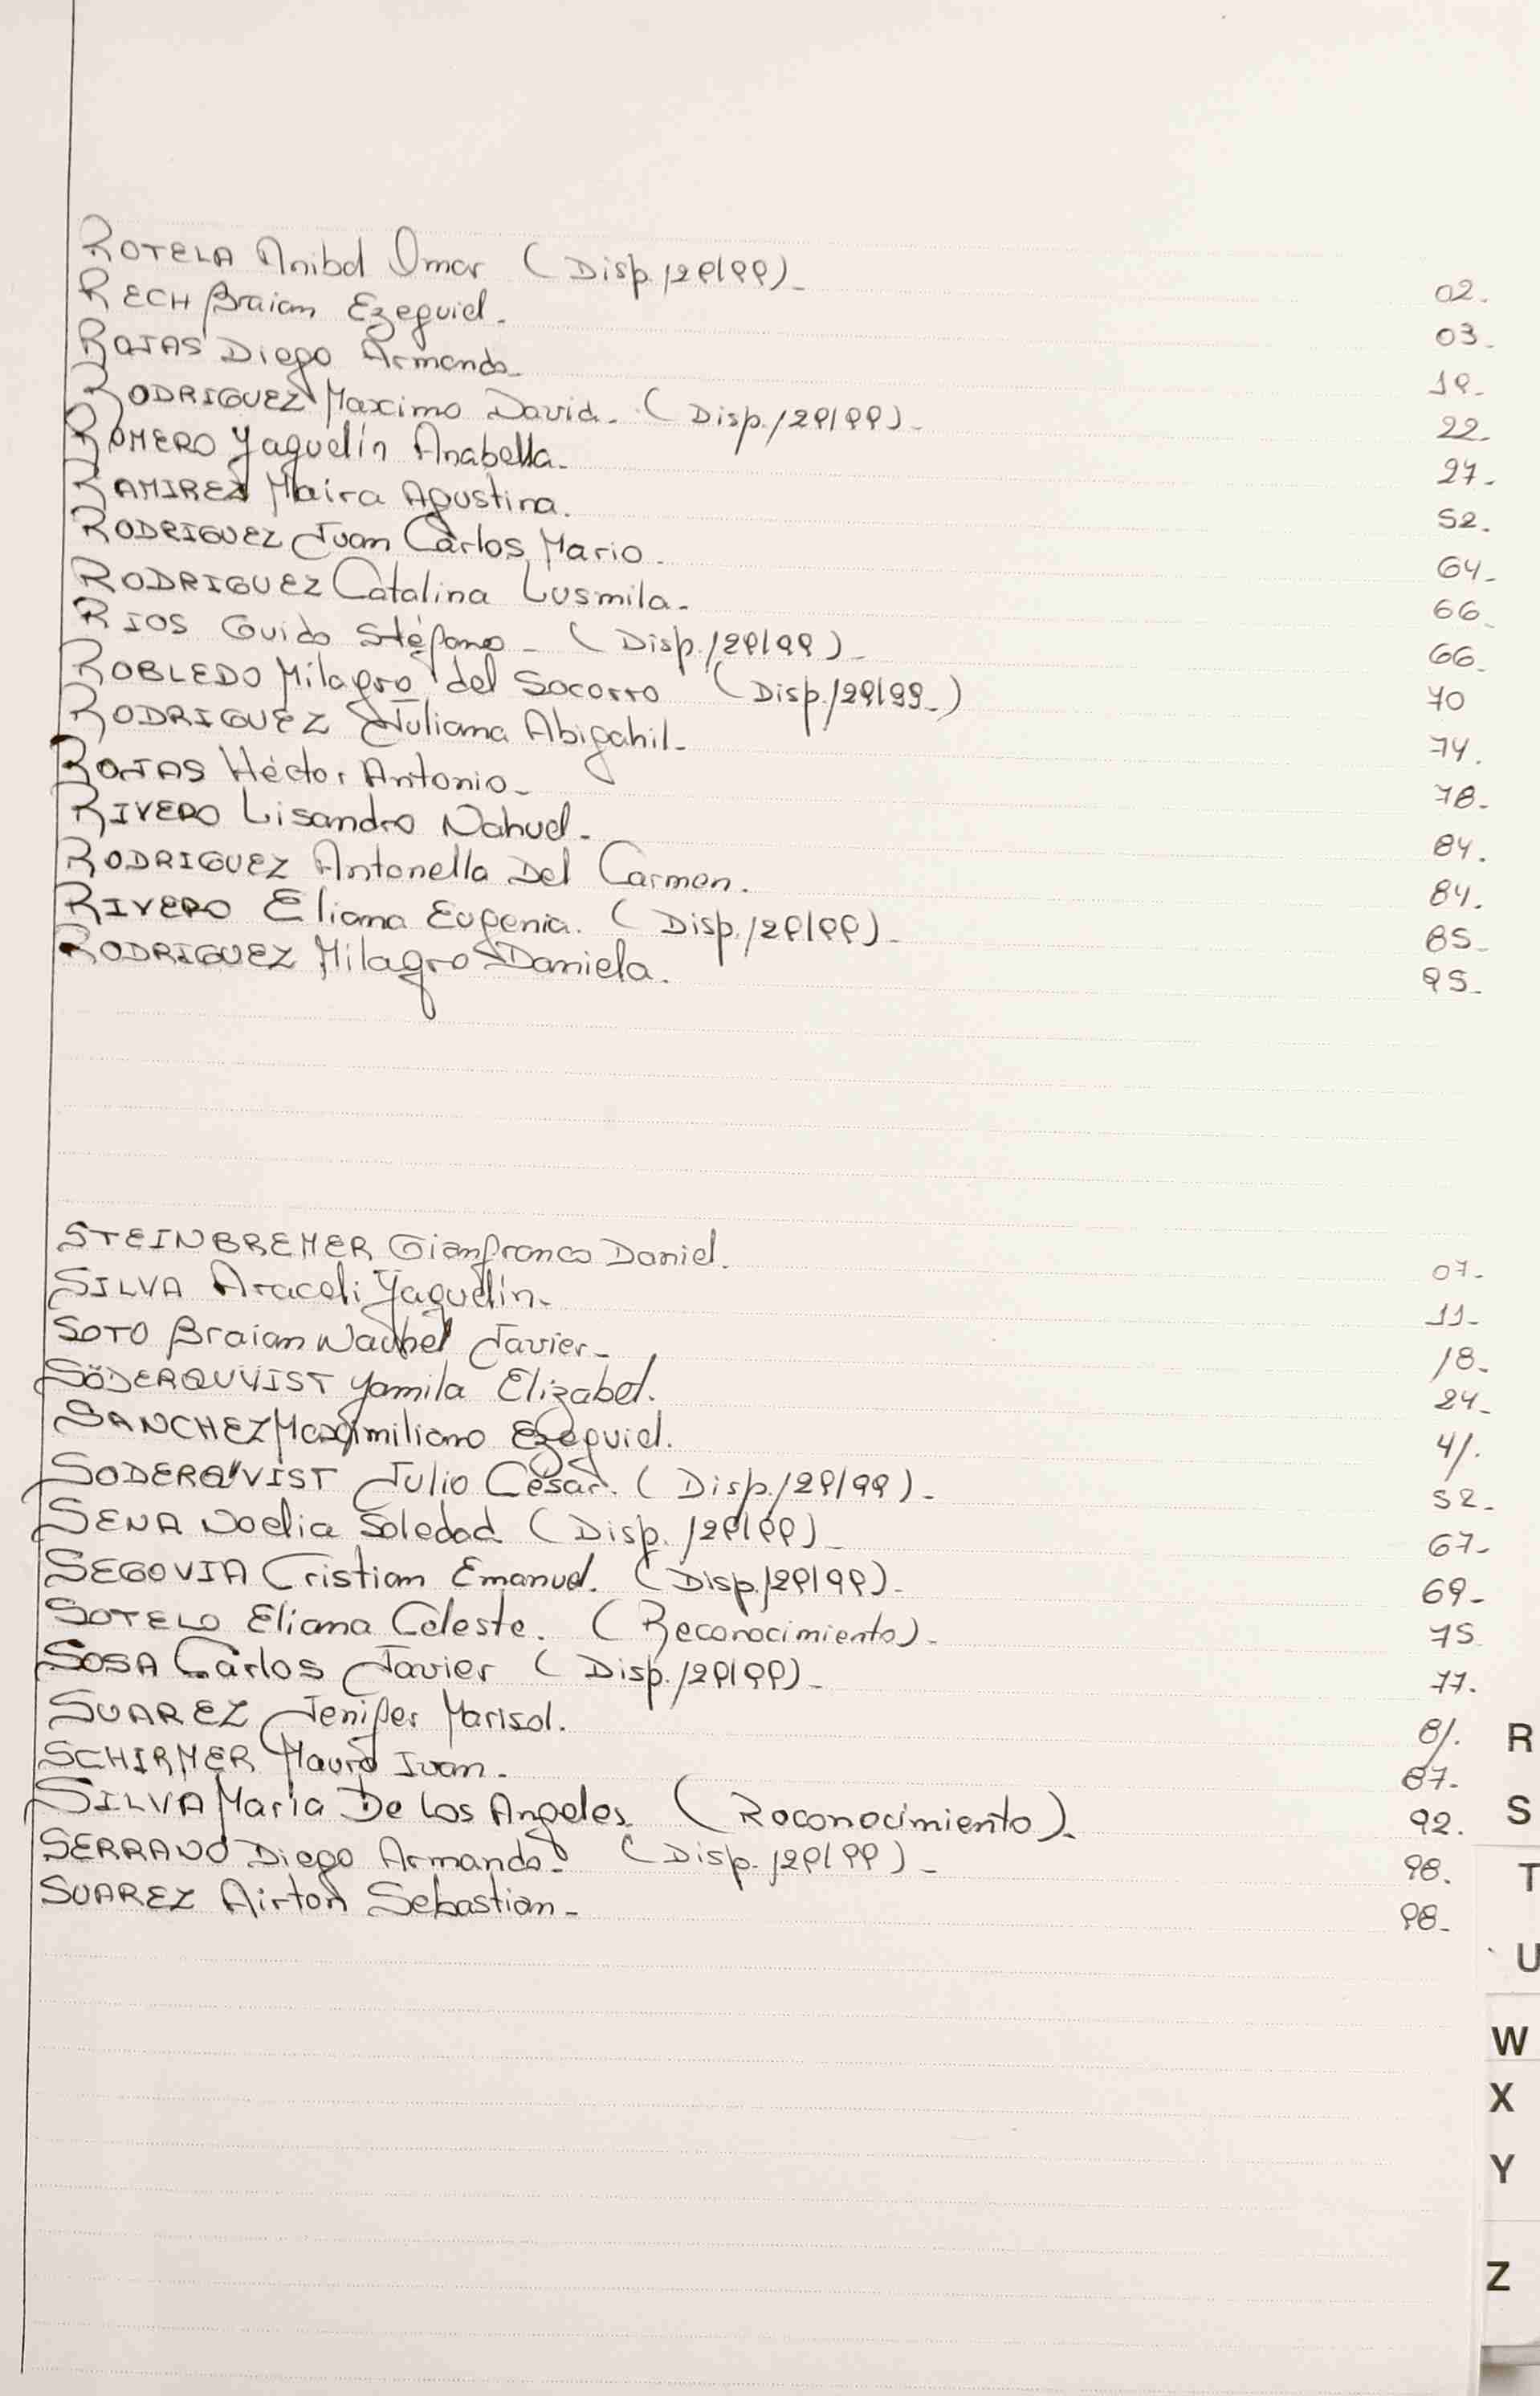 ROTELA Anibal Omar (Disp. 129/99)_ 02.
RECH Braian Ezequiel. 03_
ROJAS Diego Armando_ 19_
RODRIGUEZ Maximo David_ (Disp./29/99)_ 22_
ROMERO Yaquelín Anabella_ 27_
RAMIREZ Maira Agustina. 52.
RODRIGUEZ Juan Carlos Mario_ 64_
RODRIGUEZ Catalina Lusmila_ 66_
RIOS Guido Stéfano_ (Disp./29/99)_ 66_
ROBLEDO Milagro del Socorro (Disp./29/99_) 70
RODRIGUEZ Juliana Abigahil_ 74.
ROJAS Héctor Antonio_ 78_
RIVERO Lisandro Nahuel_ 84.
RODRIGUEZ Antonella Del Carmen. 84.
RIVERO Eliana Eugenia. (Disp./29/99)_ 85_
RODRIGUEZ Milagro Daniela. 95_
STEINBREMER Gianfranco Daniel. 07_
SILVA Araceli Yaquelín_ 11_
SOTO Braian Nauhel Javier_ 18_
SÖDERQUVIST Yamila Elizabet. 24_
SANCHEZ Maximiliano Ezequiel. 41.
SODERQVIST Julio César. (Disp./29/99)_ 52_
SENA Noelia Soledad (Disp. /29/99)_ 67_
SEGOVIA Cristian Emanuel. (Disp./29/99)_ 69_
SOTELO Eliana Celeste. (Reconocimiento)_ 75
SOSA Carlos Javier (Disp./29/99)_ 77.
SUAREZ Jenifer Marisol. 81.
SCHIRMER Mauro Ivan_ 87_
SILVA María De Los Angeles. (Roconocimiento)_ 92.
SERRANO Diego Armando_ (Disp. /29/99)_ 98.
SUAREZ Airton Sebastian_ 98_
R
S
T
U
W
X
Y
Z